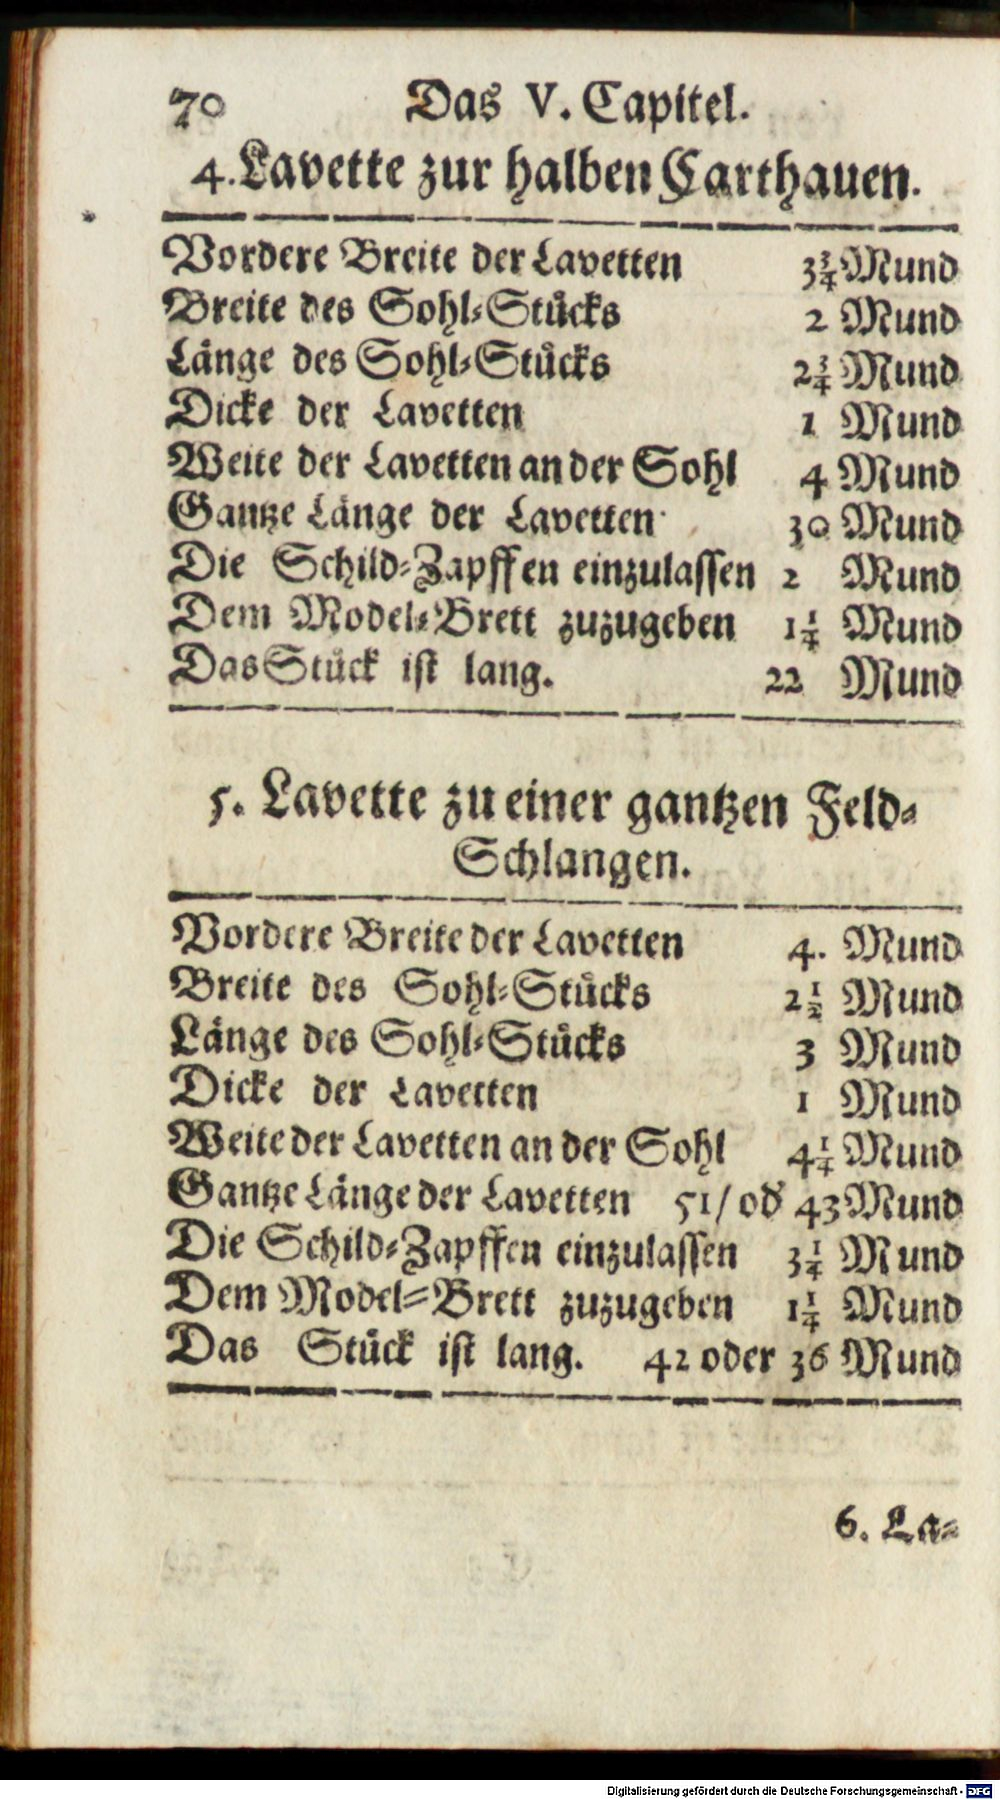 70 Das V. Capitel.
4. Lavette zur halben Carthauen.
Vordere Breite der Lavetten 3¾ Mund
Breite des Sohl-Stücks 2 Mund
Länge des Sohl-Stücks 2¾ Mund
Dicke der Lavetten 1 Mund
Weite der Lavetten an der Sohl 4 Mund
Gantze Länge der Lavetten 30 Mund
Die Schild-Zapffen einzulassen 2 Mund
Dem Model-Brett zuzugeben 1¼ Mund
Das Stück ist lang. 22 Mund
5. Lavette zu einer gantzen Feld-
Schlangen.
Vordere Breite der Lavetten 4. Mund
Breite des Sohl-Stücks 2½ Mund
Länge des Sohl-Stücks 3 Mund
Dicke der Lavetten 1 Mund
Weite der Lavetten an der Sohl 4¼ Mund
Gantze Länge der Lavetten 51/ od 43 Mund
Die Schild-Zapffen einzulassen 3¼ Mund
Dem Model-Brett zuzugeben 1¼ Mund
Das Stück ist lang. 42 oder 36 Mund
6. La-
Digitalisierung gefördert durch die Deutsche Forschungsgemeinschaft - DFG